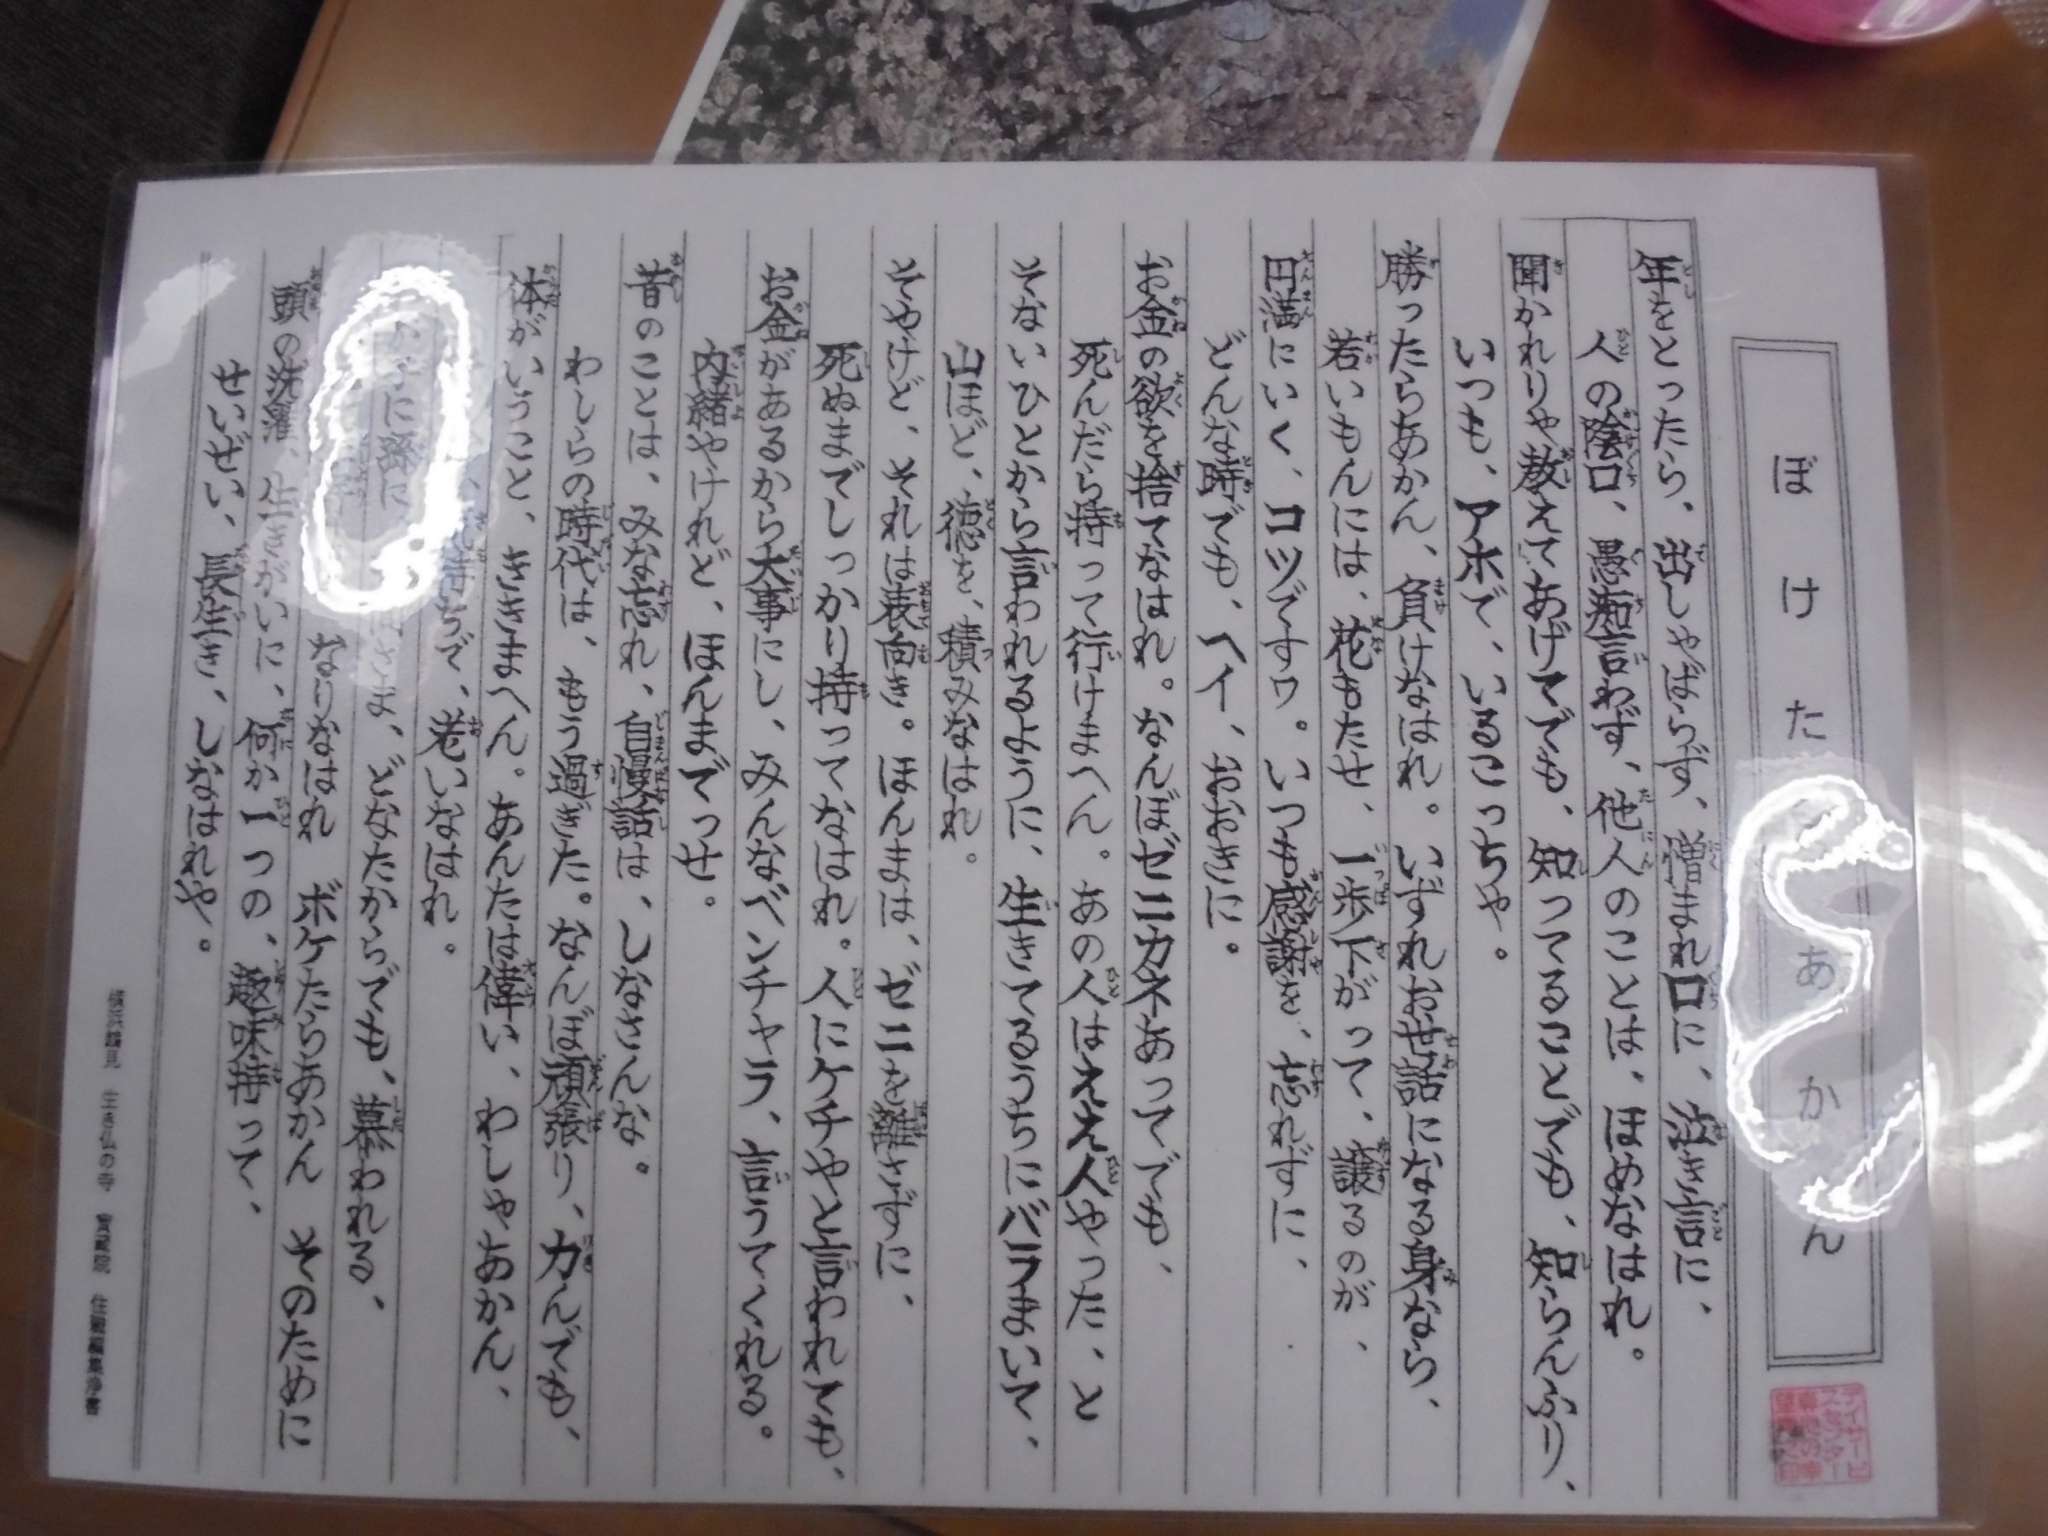 ぼけたらあかん
年をとったら、出しゃばらず、憎まれ口に、泣き言に、
人の陰口、愚痴言わず、他人のことは、ほめなはれ。
聞かれりゃ教えてあげてでも、知ってることでも、知らんふり、
いつも、アホで、いるこっちゃ。
勝ったらあかん、負けなはれ。いずれお世話になる身なら、
若いもんには、花もたせ、一歩下がって、譲るのが、
円満にいく、コツですワ。いつも感謝を、忘れずに、
どんな時でも、ヘイ、おおきに。
お金の欲を捨てなはれ。なんぼゼニカネあってでも、
死んだら持って行けまへん。あの人はええ人やった、と
そないひとから言われるように、生きてるうちにバラまいて、
山ほど、徳を、積みなはれ。
そやけど、それは表向き。ほんまは、ゼニを離さずに、
死ぬまでしっかり持ってなはれ。人にケチやと言われても、
お金があるから大事にし、みんなベンチャラ、言うてくれる。
内緒やけれど、ほんまでっせ。
昔のことは、みな忘れ、自慢話は、しなさんな。
わしらの時代は、もう過ぎた。なんぼ頑張り、力んでも、
体がいうこと、ききまへん。あんたは偉い、わしゃあかん、
持ちで、老いなはれ。
どなたからでも、慕われる、
なりなはれ ボケたらあかん そのために
頭の洗濯、生きがいに、何か一つの、趣味持って、
せいぜい、長生き、しなはれや。
生き仏の寺
デイサービ